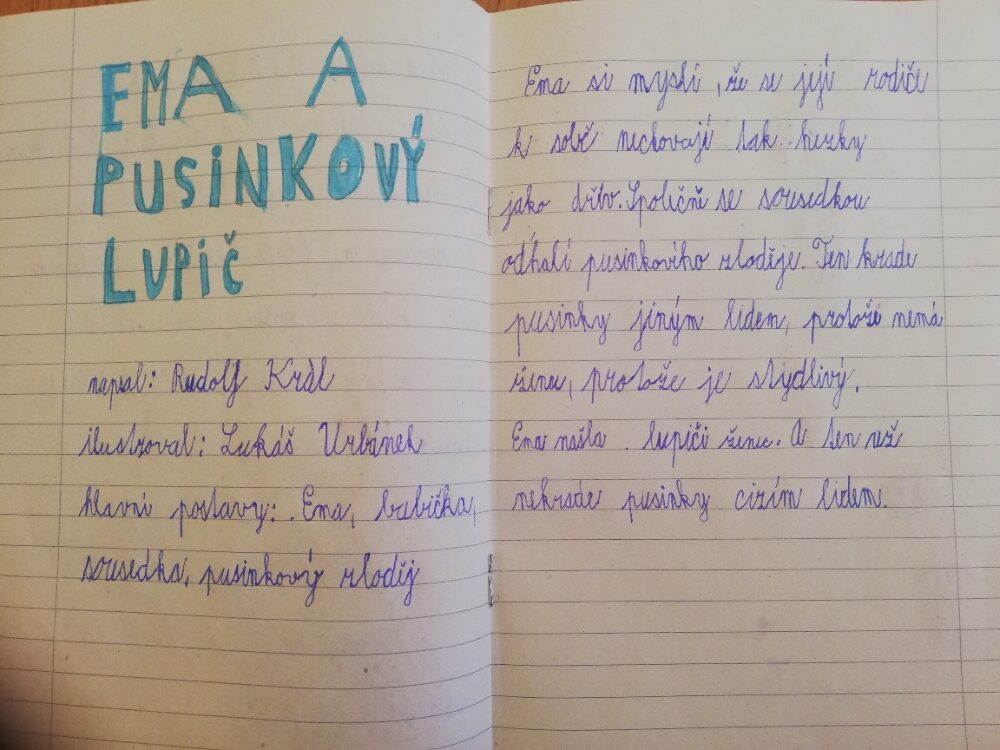 EMA A
PUSINKOVÝ
LUPIČ
napsal: Rudolf Král
ilustroval: Lukáš Urbánek
hlavní postavy: Ema, babička,
sousedka, pusinkový zloděj
Ema si myslí, že se její rodiče
k sobě nechovají tak hezky
jako dřív. Společně se sousedkou
odhalí pusinkového zloděje. Ten krade
pusinky jiným lidem, protože nemá
ženu, protože je stydlivý.
Ema našla lupiči ženu. A ten už
nekrade pusinky cizím lidem.